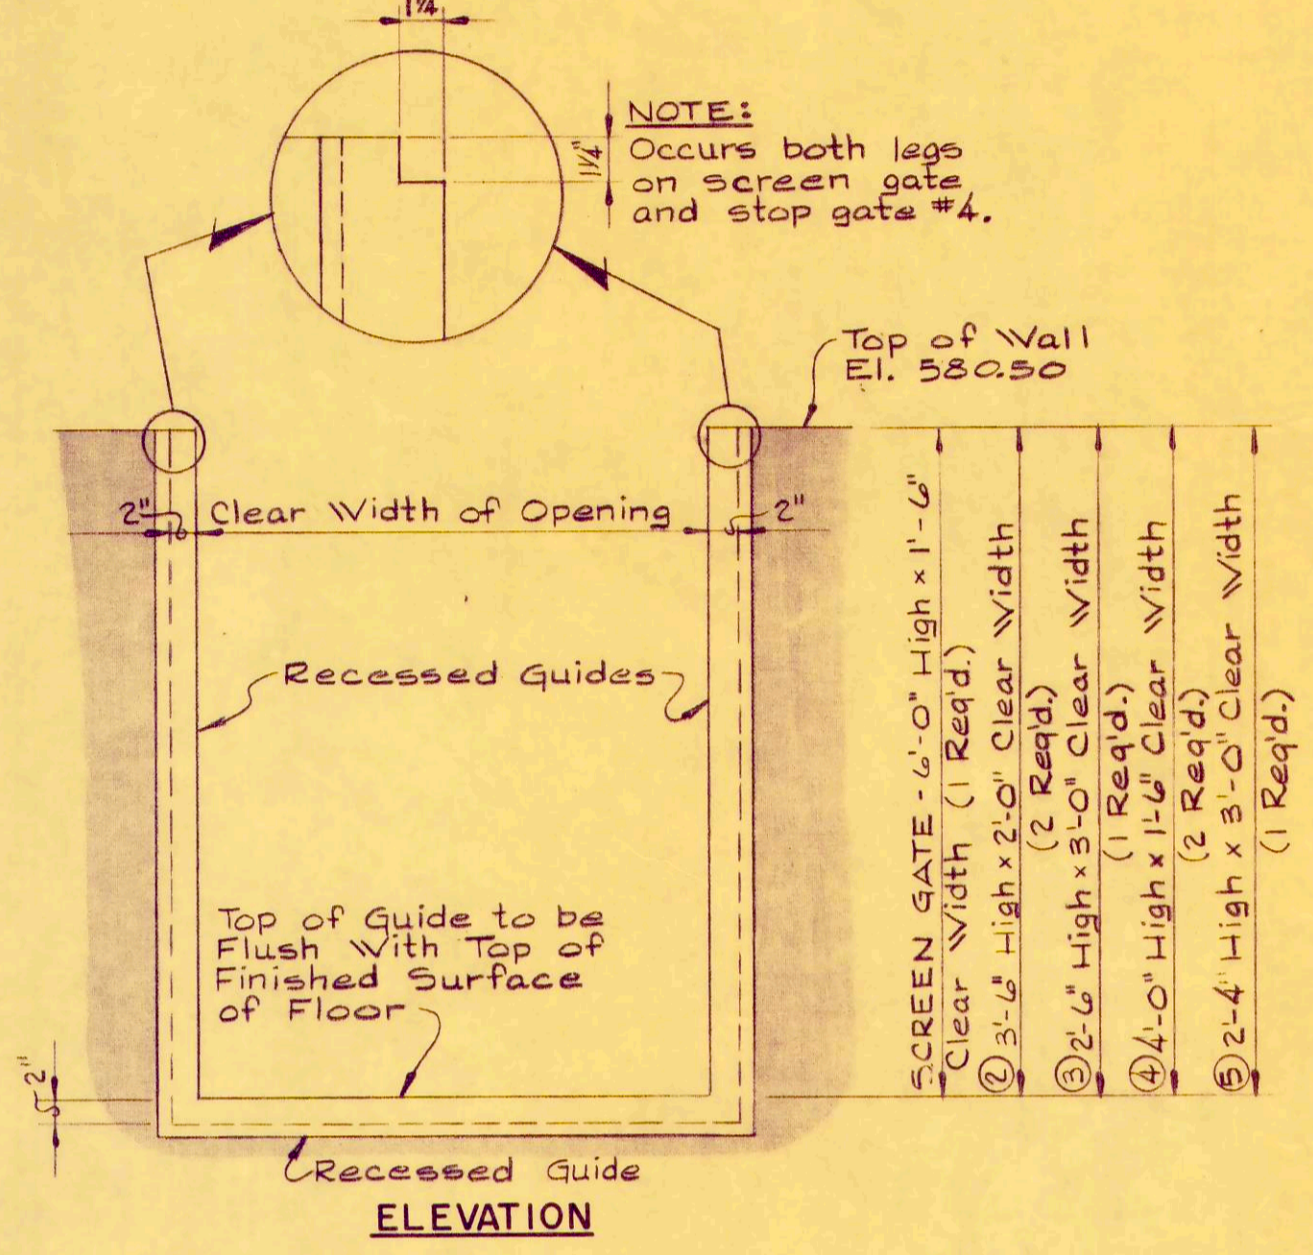 1¼"
1¼"
NOTE:
Occurs both legs
on screen gate
and stop gate #4.
Top of Wall
El. 580.50
2" Clear Width of Opening 2"
Recessed Guides
Top of Guide to be
Flush With Top of
Finished Surface
of Floor
2"
Recessed Guide
ELEVATION
SCREEN GATE - 6'-0" High x 1'-6"
Clear Width (1 Req'd.)
② 3'-6" High x 2'-0" Clear Width
(2 Req'd.)
③ 2'-6" High x 3'-0" Clear Width
(1 Req'd.)
④ 4'-0" High x 1'-6" Clear Width
(2 Req'd.)
⑤ 2'-4" High x 3'-0" Clear Width
(1 Req'd.)